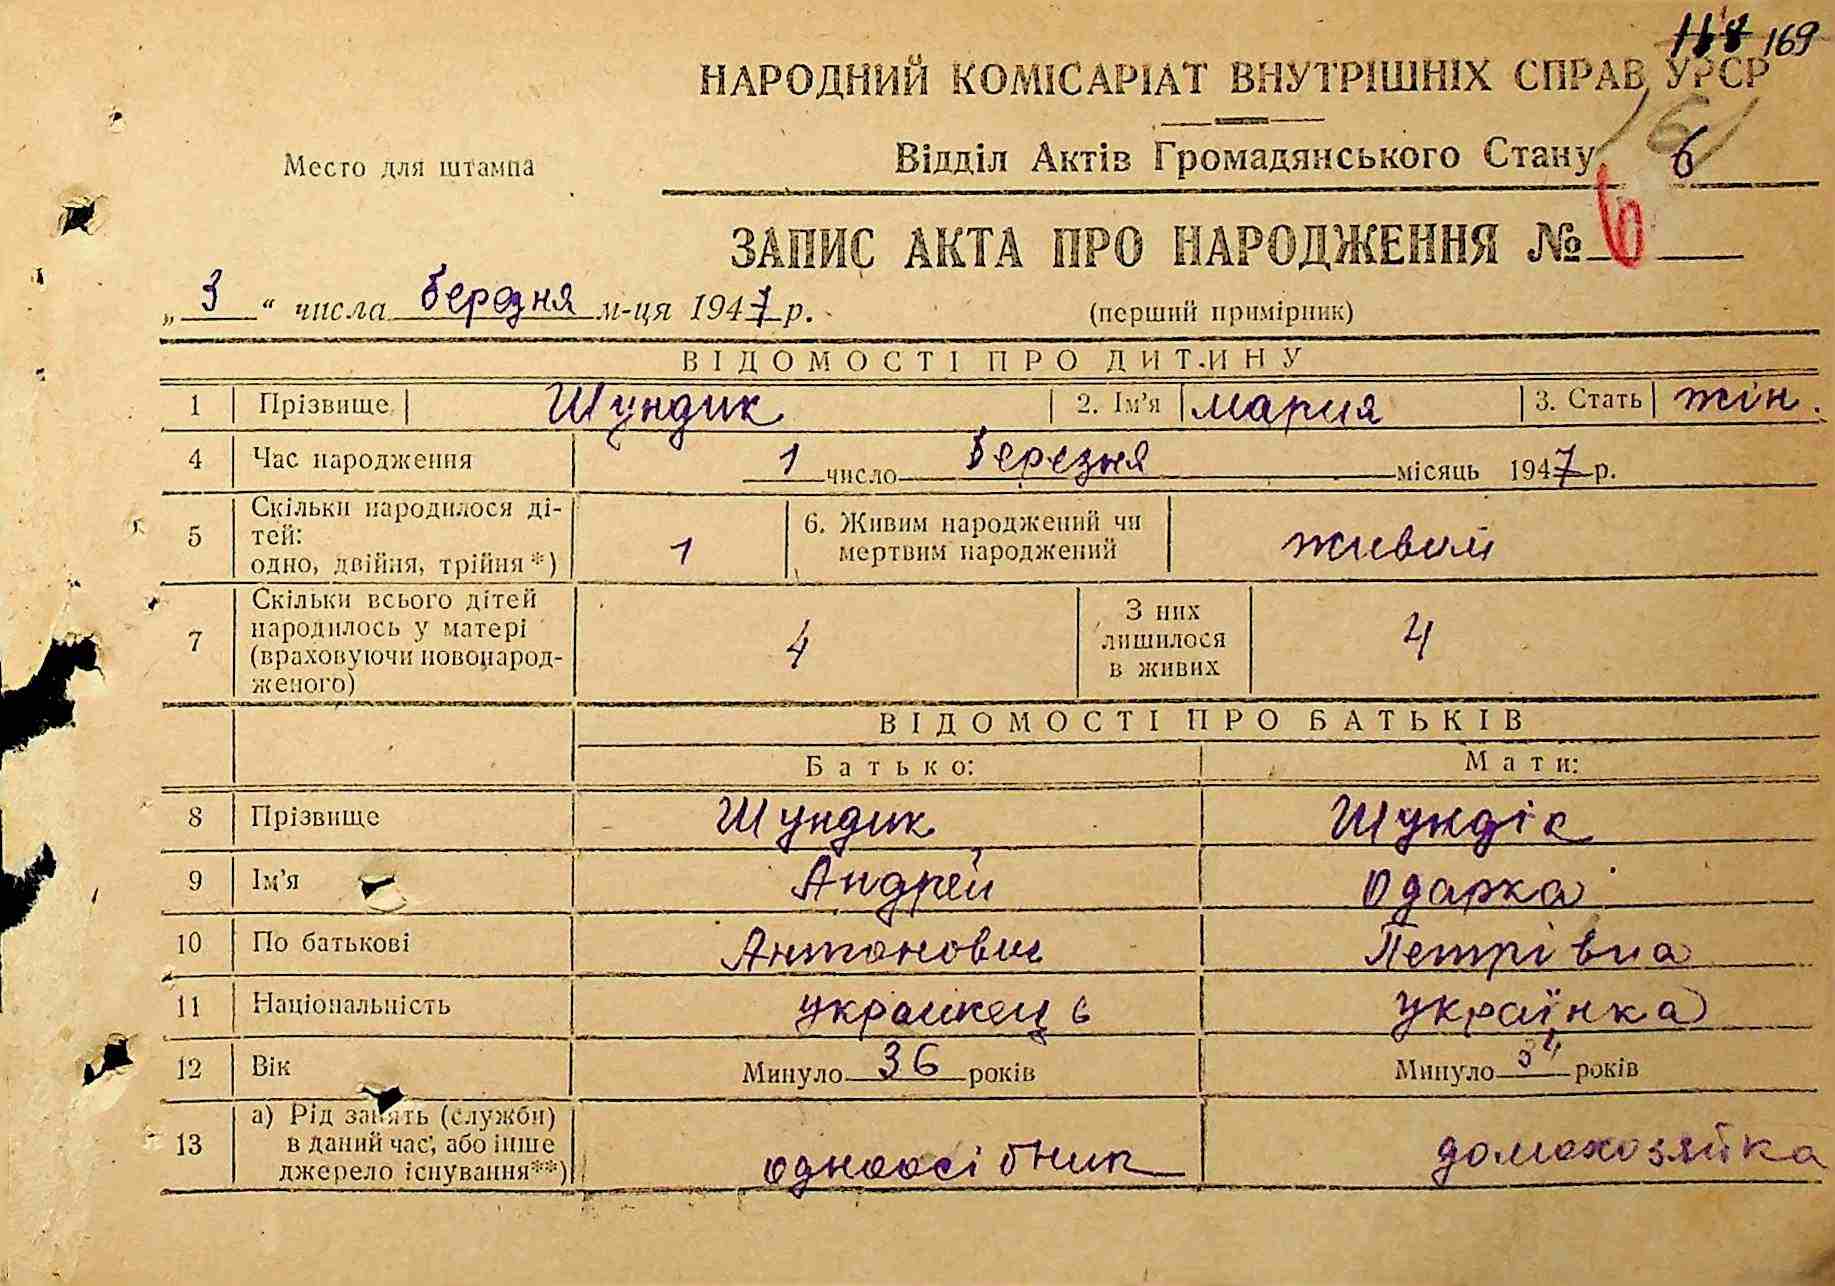 169
НАРОДНИЙ КОМІСАРІАТ ВНУТРІШНІХ СПРАВ УРСР
Место для штампа
Відділ Актів Громадянського Стану 6
ЗАПИС АКТА ПРО НАРОДЖЕННЯ № 6
„3“ числа березня м-ця 1947 р. (перший примірник)
ВІДОМОСТІ ПРО ДИТИНУ
1 Прізвище Шундик 2. Ім'я Мария 3. Стать жін.
4 Час народження 1 число березня місяць 1947 р.
5 Скільки народилося ді-
тей:
одно, двійня, трійня*) 1 6. Живим народжений чи
мертвим народжений живим
7 Скільки всього дітей
народилось у матері
(враховуючи новонарод-
женого) 4 З них
лишилося
в живих 4
ВІДОМОСТІ ПРО БАТЬКІВ
Батько: Мати:
8 Прізвище Шундик Шундік
9 Ім'я Андрей Одарка
10 По батькові Антонович Петрівна
11 Національність украинец українка
12 Вік Минуло 36 років Минуло 34 років
13 а) Рід занять (служби)
в даний час, або інше
джерело існування**) одноосібник домохозяйка